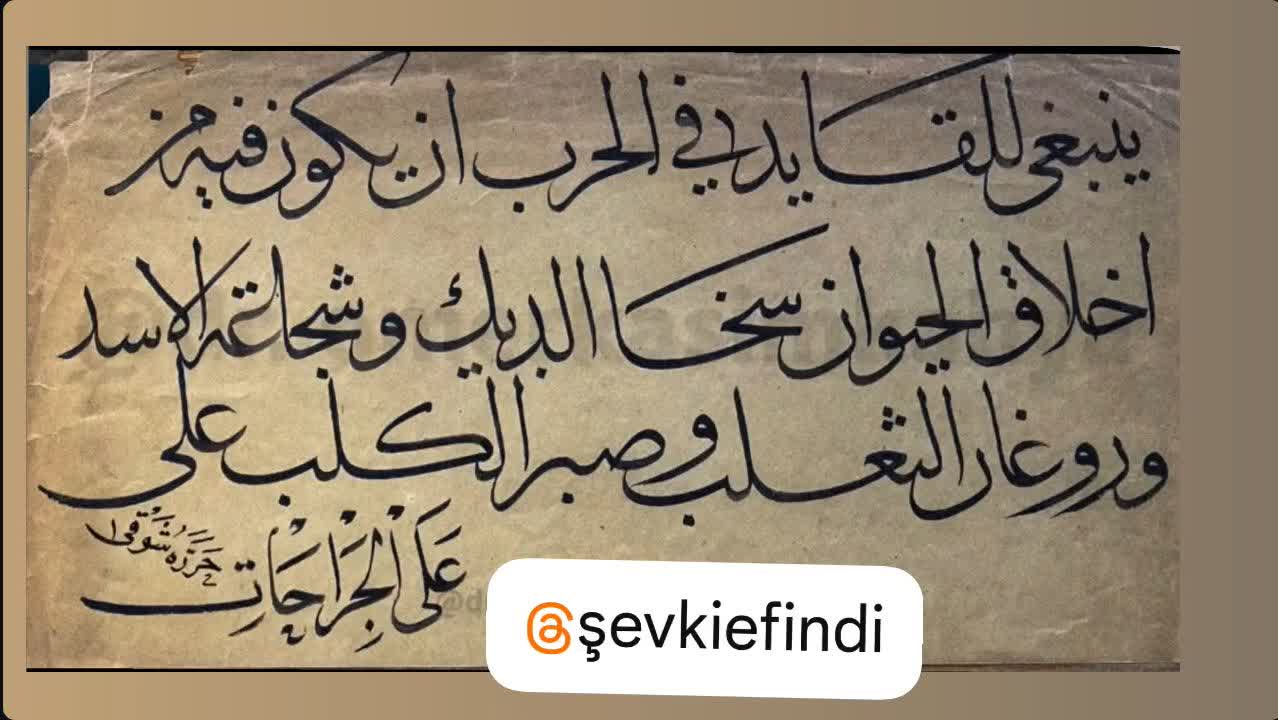 ينبغي للقايد في الحرب ان يكون فيه من
اخلاق الحيوان سخا الديك وشجاعة الاسد
وروغان الثعلب وصبر الكلب على
عَلَى الْجَرَاحَاتِ
حَرَّرَهُ شَوْقِى
@şevkiefindi